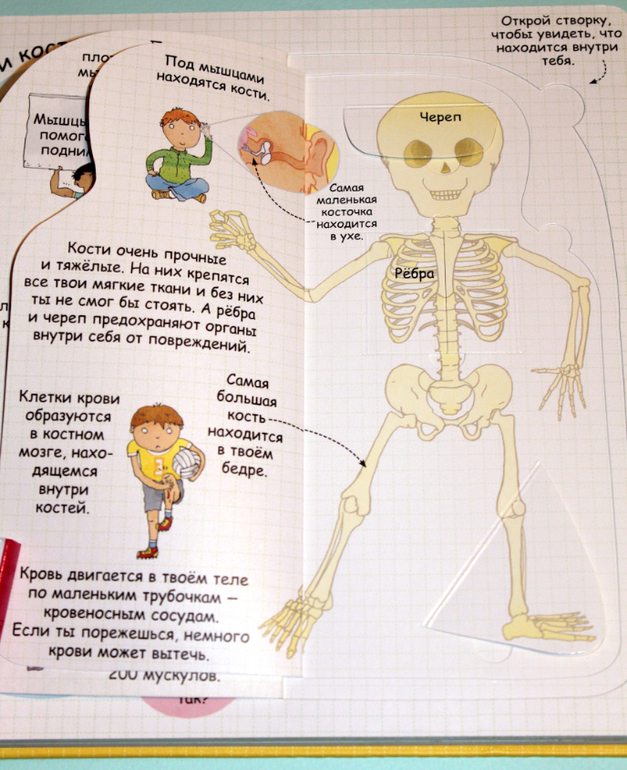 Открой створку,
чтобы увидеть, что
находится внутри
тебя.
Под мышцами
находятся кости.
Мышцы
Череп
Самая
маленькая
косточка
находится
в ухе.
Рёбра
Кости очень прочные
и тяжёлые. На них крепятся
все твои мягкие ткани и без них
ты не смог бы стоять. А рёбра
и череп предохраняют органы
внутри себя от повреждений.
Самая
большая
кость
находится
в твоём
бедре.
Клетки крови
образуются
в костном
мозге, нахо-
дящемся
внутри
костей.
Кровь двигается в твоём теле
по маленьким трубочкам —
кровеносным сосудам.
Если ты порежешься, немного
крови может вытечь.
200 мускулов.
так?